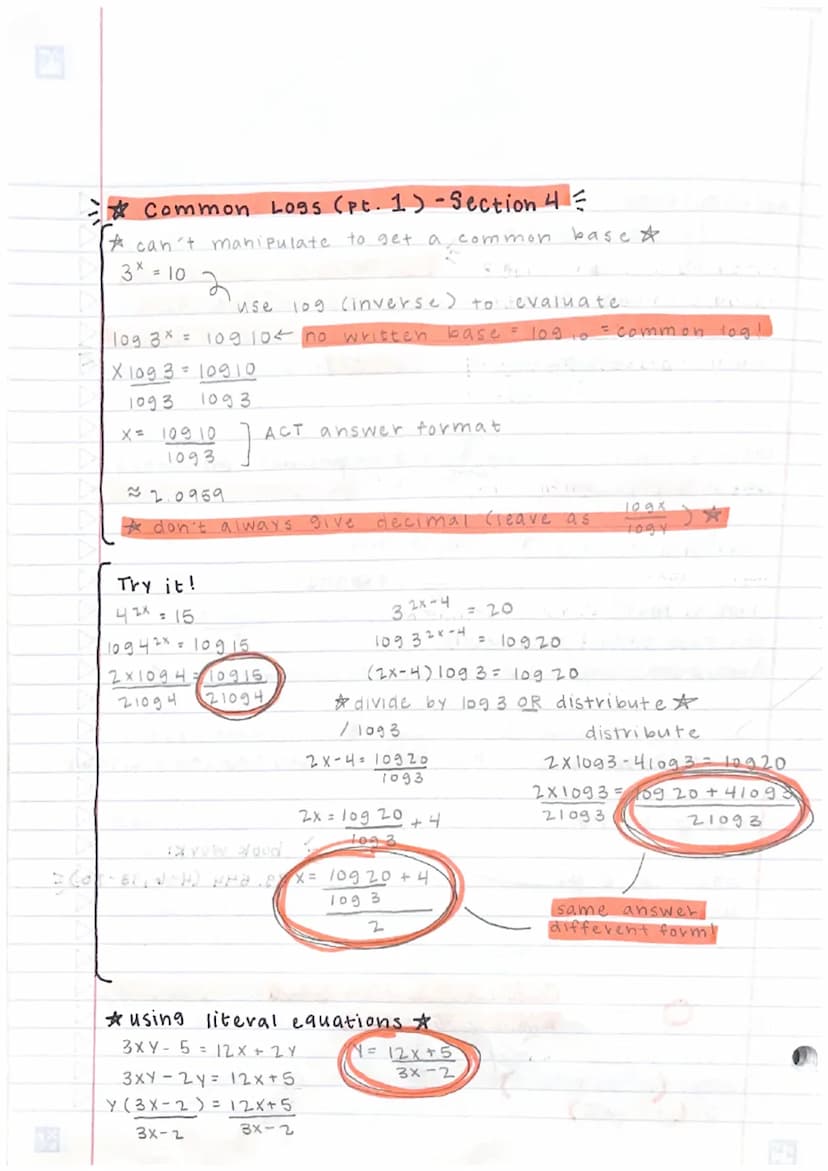 ☆ Common Logs (pt. 1) - Section 4
☆ can't manipulate to get a common base ☆
3^x = 10
use log (inverse) to evaluate
log 3^x = log 10 ← no written base = log₁₀ = common log!
x log 3 = log 10
log 3 log 3
x = log 10 / log 3 ] ACT answer format
≈ 2.0959
☆ don't always give decimal (leave as log x / log y) ☆
Try it!
4^2x = 15
log 4^2x = log 15
2x log 4 = log 15
2 log 4 2 log 4
3^2x-4 = 20
log 3^2x-4 = log 20
(2x-4) log 3 = log 20
☆ divide by log 3 OR distribute ☆
/ log 3
2x-4 = log 20 / log 3
2x = log 20 / log 3 + 4
x = log 20 / log 3 + 4
2
distribute
2x log 3 - 4 log 3 = log 20
2x log 3 = log 20 + 4 log 3
2 log 3 2 log 3
same answer
different form!
☆ using literal equations ☆
3xy - 5 = 12x + 2y
3xy - 2y = 12x + 5
y (3x - 2) = 12x + 5
3x - 2 3x - 2
y = 12x + 5
3x - 2